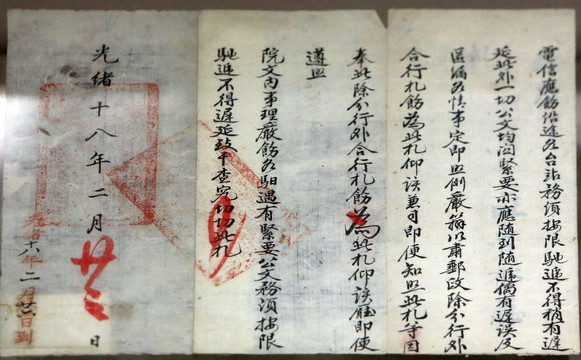 電信應飭沿途各台站務須按限馳遞不得稍有遲
延此外一切公文均關緊要亦應隨到隨遞倘有遲誤及
各情事定即照例嚴以肅郵政除分行外
合行札飭為此札仰該兼司即便知照此札等因
奉此除分行外合行札飭為此札仰該即便
遵照
院文內事理嚴飭各驲遇有緊要公文務須按限
馳遞不得遲延致干查究切切此札
光緒十八年二月廿三日
光緒十八年二月日到